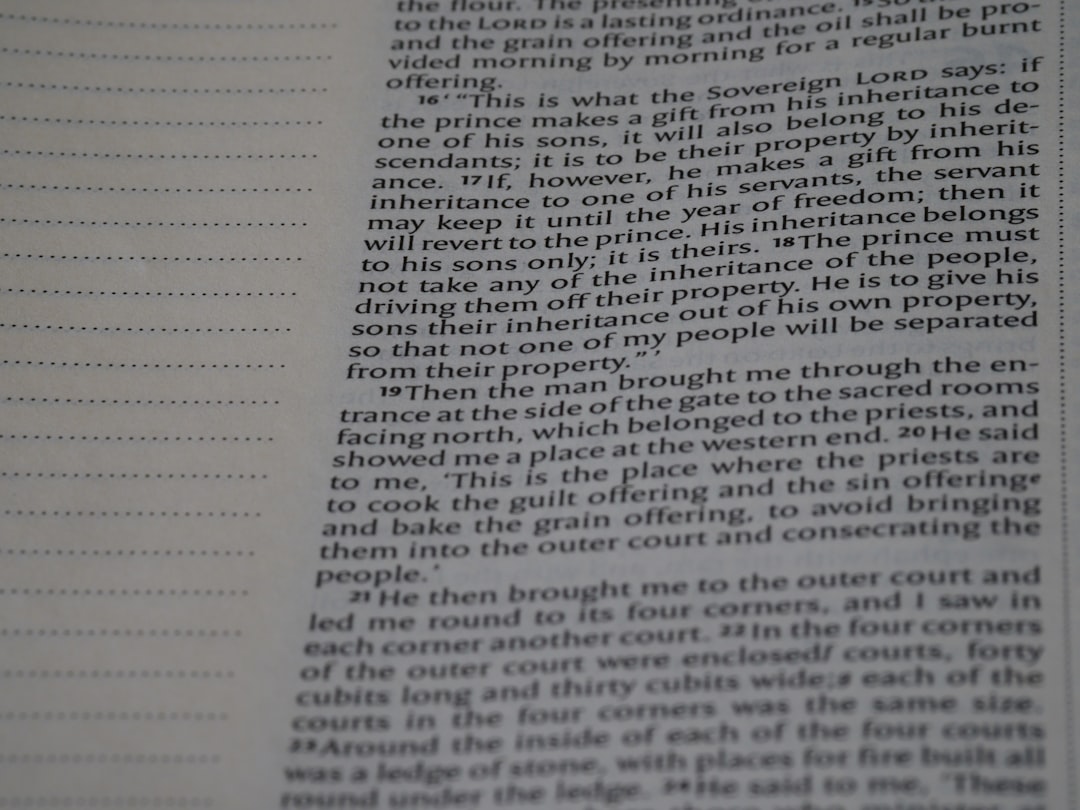 the flour. The presenting of
to the LORD is a lasting ordinance. 15 So the
and the grain offering and the oil shall be pro-
vided morning by morning for a regular burnt
offering.
16 ‘ “This is what the Sovereign LORD says: if
the prince makes a gift from his inheritance to
one of his sons, it will also belong to his de-
scendants; it is to be their property by inherit-
ance. 17 If, however, he makes a gift from his
inheritance to one of his servants, the servant
may keep it until the year of freedom; then it
will revert to the prince. His inheritance belongs
to his sons only; it is theirs. 18 The prince must
not take any of the inheritance of the people,
driving them off their property. He is to give his
sons their inheritance out of his own property,
so that not one of my people will be separated
from their property.” ’
19 Then the man brought me through the en-
trance at the side of the gate to the sacred rooms
facing north, which belonged to the priests, and
showed me a place at the western end. 20 He said
to me, ‘This is the place where the priests are
to cook the guilt offering and the sin offering e
and bake the grain offering, to avoid bringing
them into the outer court and consecrating the
people.’
21 He then brought me to the outer court and
led me round to its four corners, and I saw in
each corner another court. 22 In the four corners
of the outer court were enclosed f courts, forty
cubits long and thirty cubits wide; g each of the
courts in the four corners was the same size.
23 Around the inside of each of the four courts
was a ledge of stone, with places for fire built all
round under the ledge. 24 He said to me, ‘These